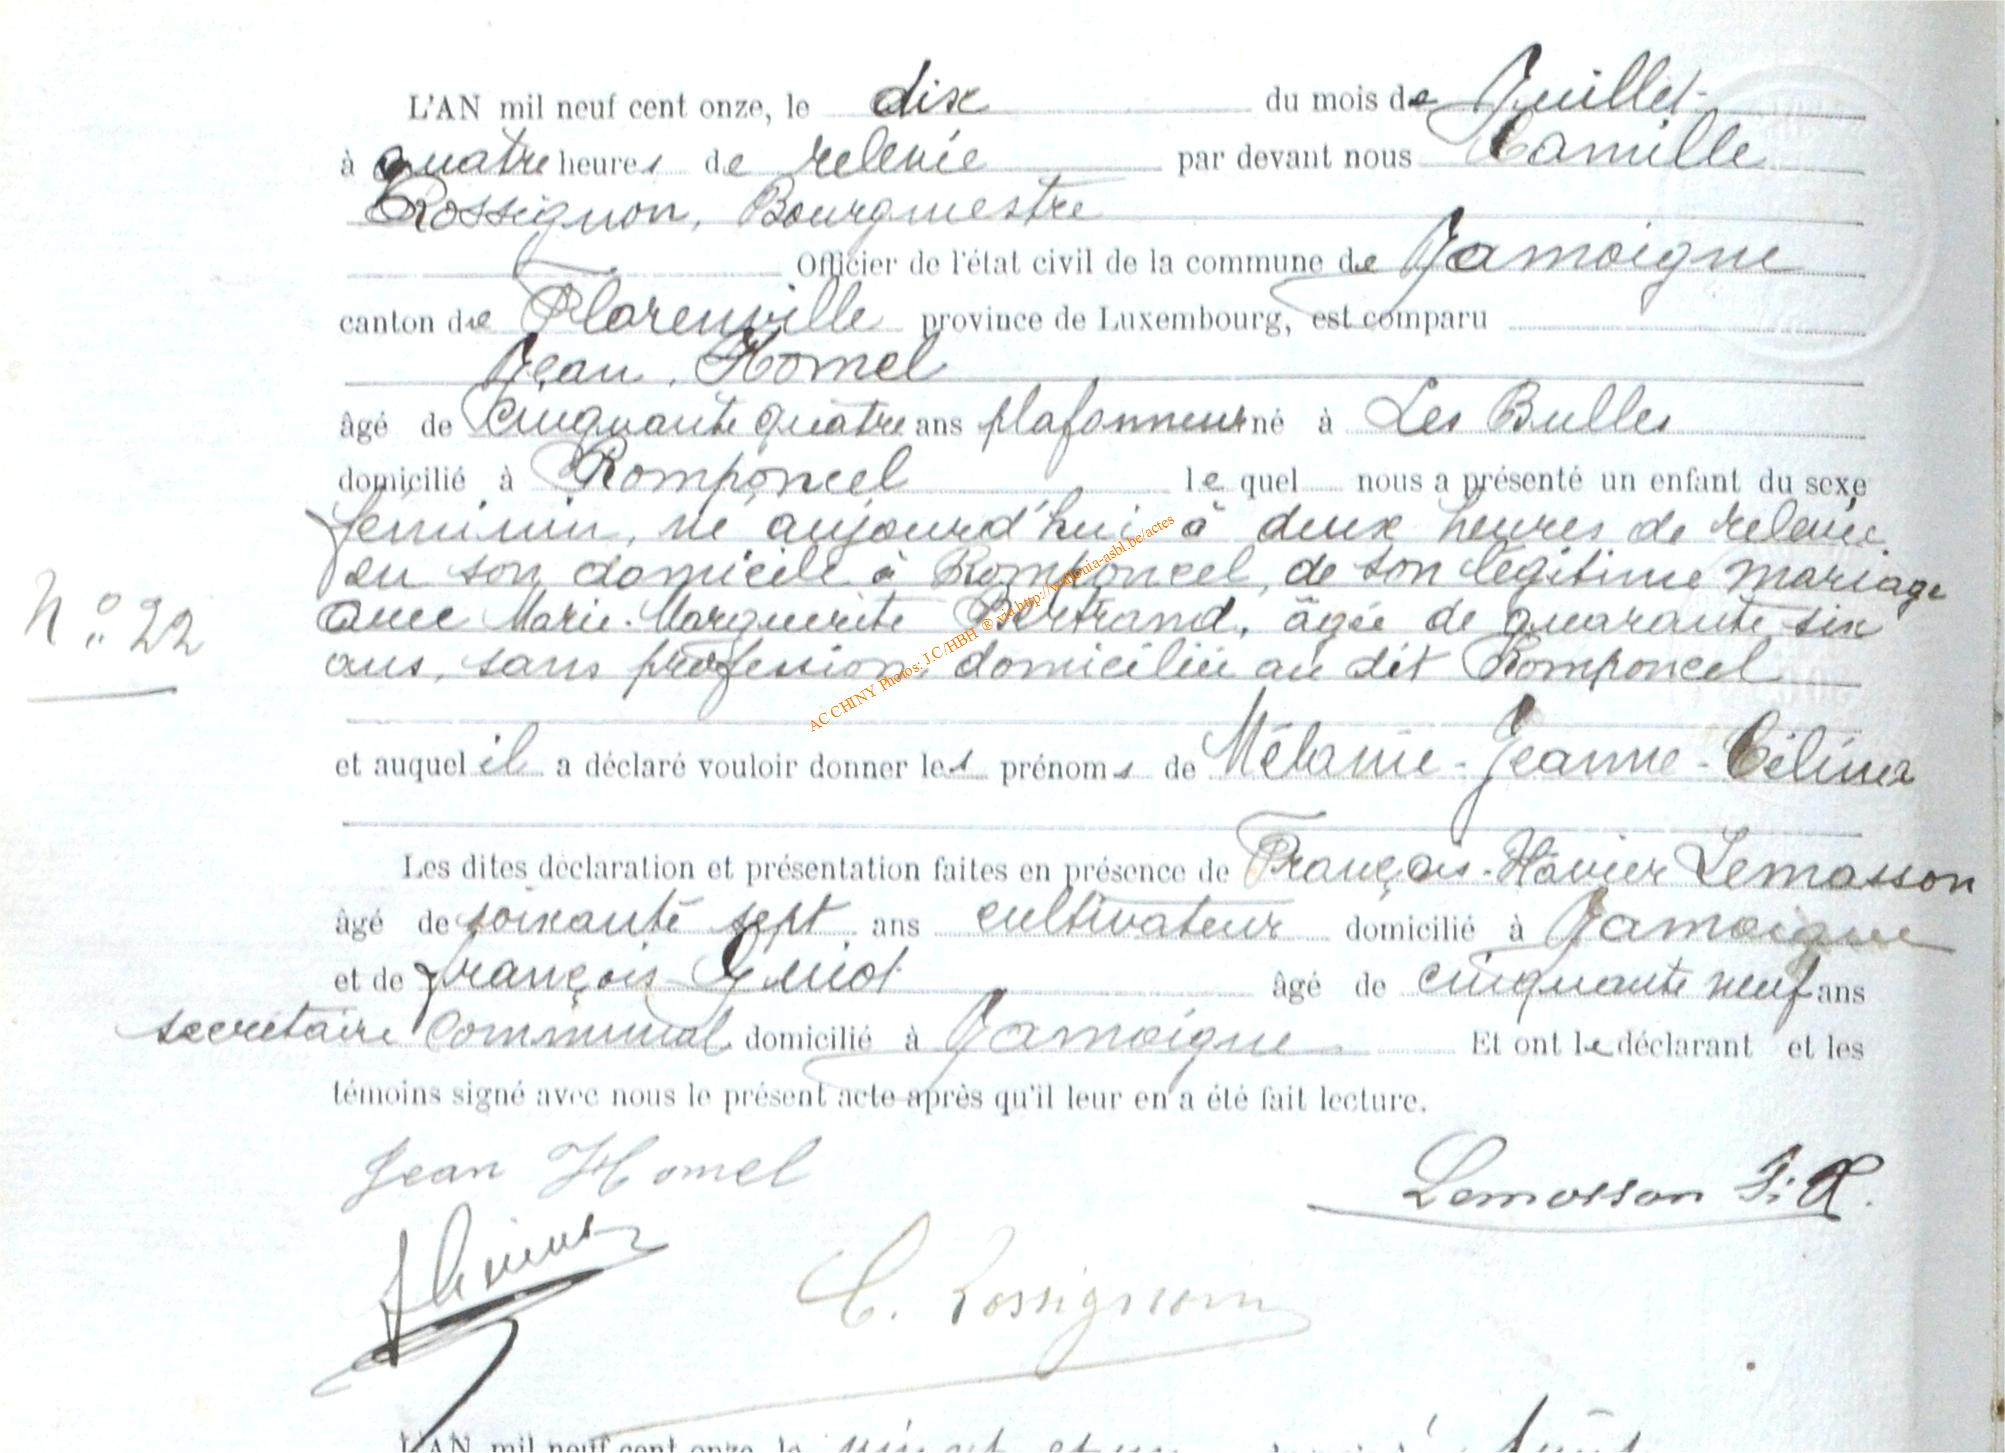 L'AN mil neuf cent onze, le dix du mois de Juillet
à quatre heures de relevée par devant nous Camille
Rossignon, Bourgmestre
Officier de l'état civil de la commune de Jamoigne
canton de Florenville province de Luxembourg, est comparu
Jean Homel
âgé de cinquante quatre ans plafonneur né à Les Bulles
domicilié à Romponcel le quel nous a présenté un enfant du sexe
féminin, né aujourd'hui à deux heures de relevée
en son domicile à Romponcel, de son légitime mariage
N° 22
avec Marie-Marguerite Bertrand, âgée de quarante six
ans, sans profession, domiciliée au dit Romponcel
AC CHINY Photos: J.C/HBH ® via http://wallonia-asbl.be/actes
et auquel il a déclaré vouloir donner les prénoms de Mélanie-Jeanne-Célina
Les dites déclaration et présentation faites en présence de François-Xavier Lemasson
âgé de soixante sept ans cultivateur domicilié à Jamoigne
et de François âgé de cinquante neuf ans
secrétaire communal domicilié à Jamoigne Et ont le déclarant et les
témoins signé avec nous le présent acte après qu'il leur en a été fait lecture.
Jean Homel
Lemasson F. X.
C. Rossignon
L'AN mil neuf cent onze, le vingt et un